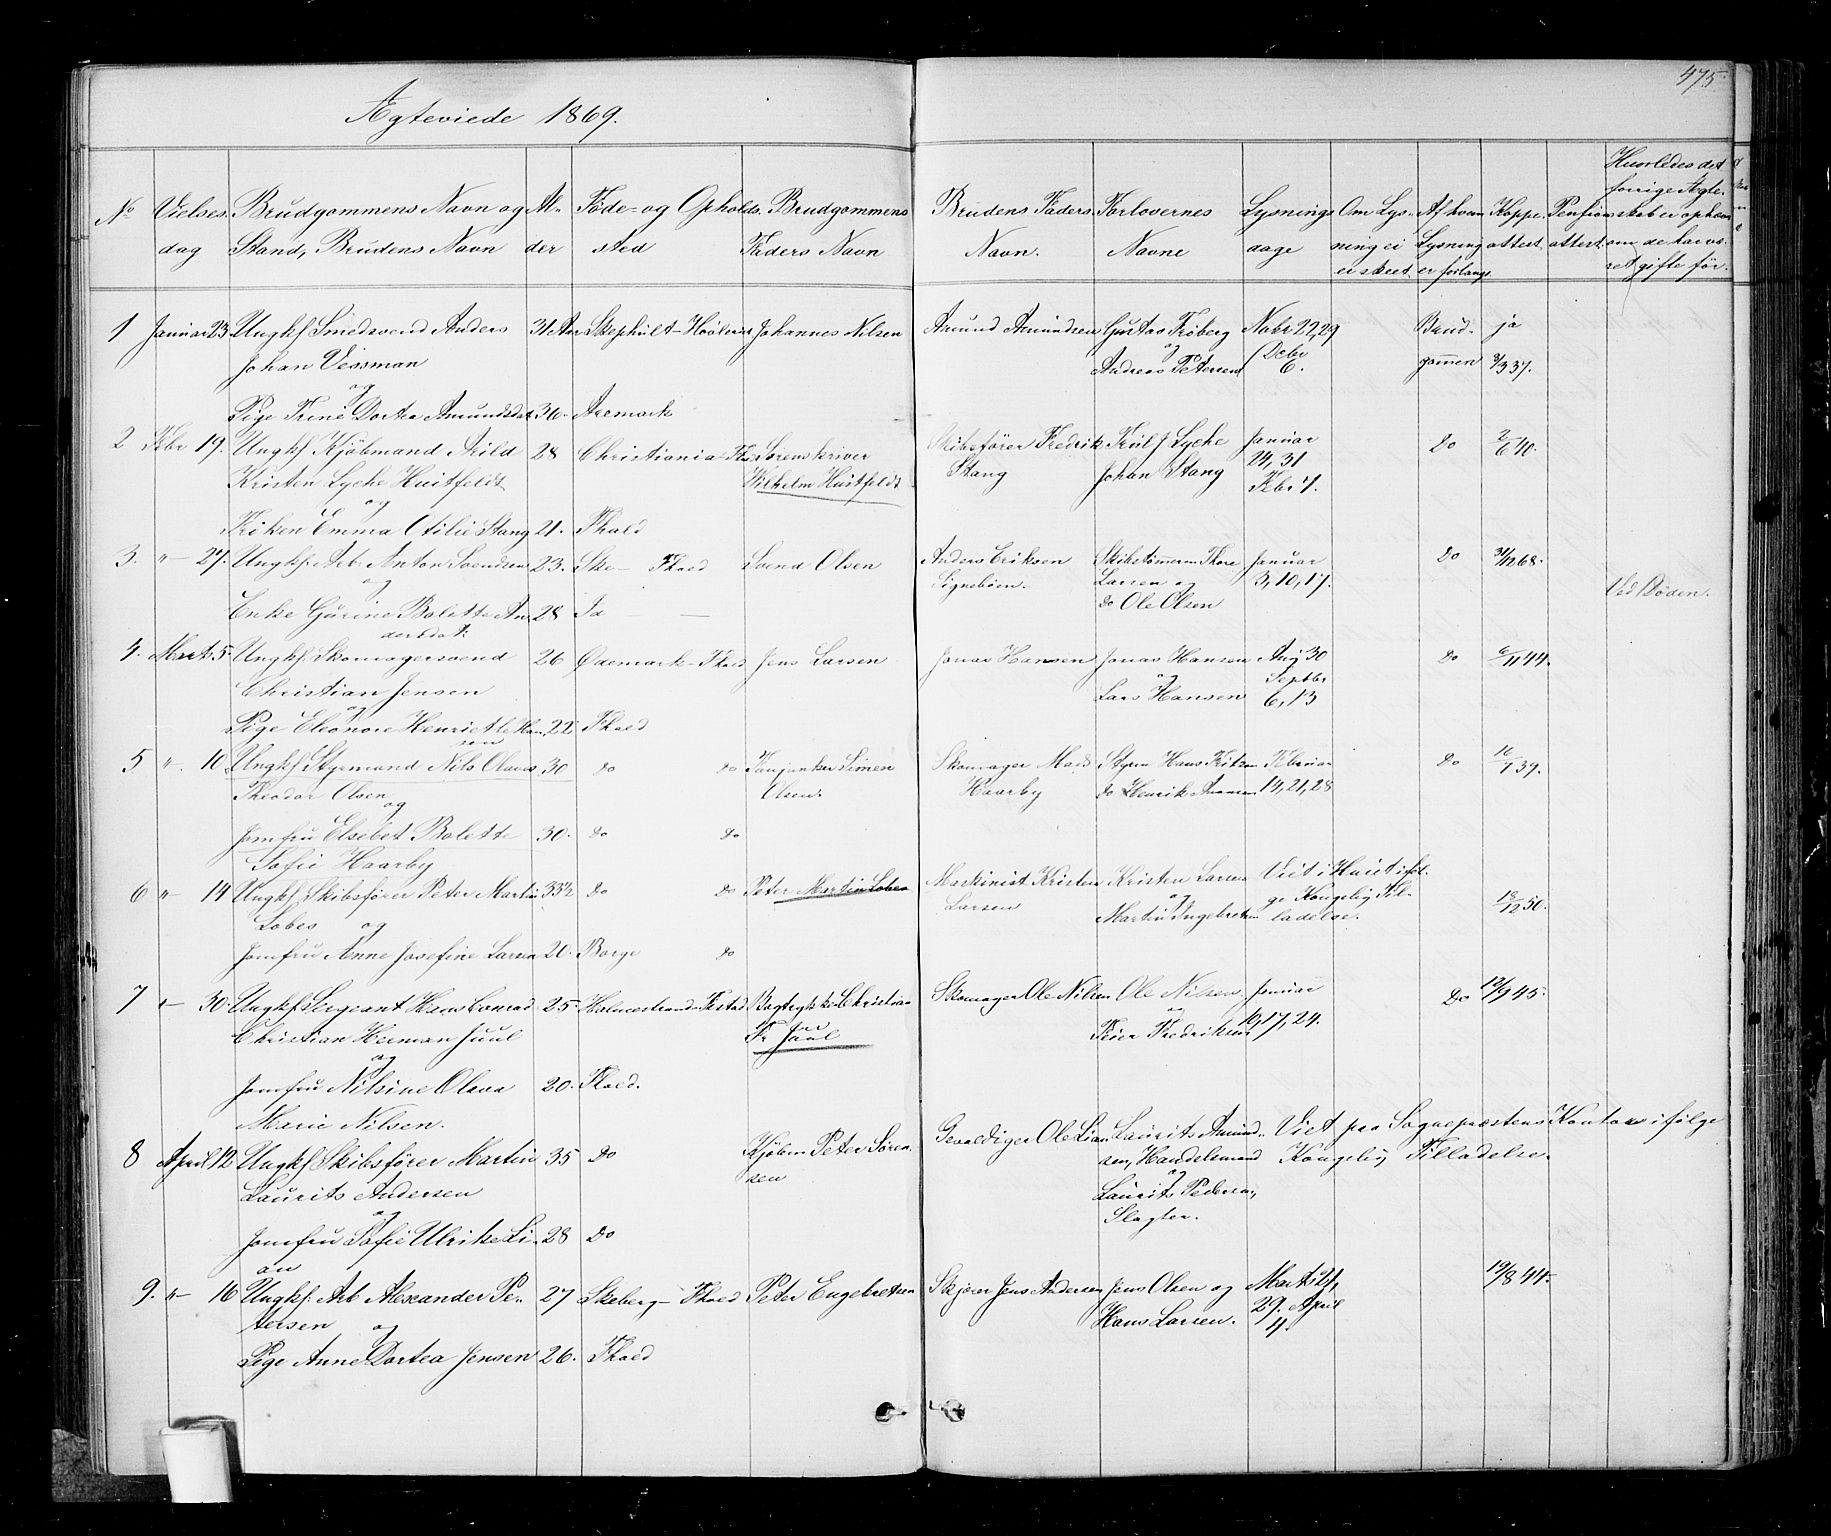 475.
Ægteviede 1869.
No Vielses dag Brudgommens Navn og Stand, Brudens Navn Alder Føde- og Opholdssted Brudgommens Faders Navn Brudens Faders Navn. Forlovernes Navne Lysnings dage Om Lysning ei er skeet Af hvem Lysning er forlangt Koppe attest Pension attest Hvorledes det forrige Ægteskab er ophævet om de har været gifte før.
1 Januar 23 Ungkf Smedsvend Anders 31 Aar Johannes Nilsen Amund Amundsen Gustav Frøberg Nobr 22, 29 Brud- ja
Johan Vessman og Andreas Petersen Debr 6. gommen 3/3 37.
og
Pige Trine Dortea Amundsdat 36. Aremark
2 Febr 19. Ungkf Kjøbmand Arild 28 Christiania Sorenskriver Skibsfører Fredrik J Lyche Januar Do 2/6 40.
Kristen Lyche Huitfeldt Wilhelm Huitfeldt Stang Johan Stang 24, 31
og Febr 7.
Frøken Emma Otilie Stang 21. Fhald
3. " 27. Ungkf. Arb. Anton Svendsen 23. Ske- Fhald Svend Olsen Anders Eriksen Skibstømmerm Thore Januar Do 31/12 68.
og Signebøen. Larsen og 3, 10, 17.
Enke Gurine Bolette An- 28 Id do Ole Olsen Ved Døden.
dersdat:
4. Mart. 5. Ungkf. Skomagersvend 26 Ødemark- Fhald Jens Larsen Jonas Hansen Jonas Hansen Aug 30 Do 6/11 44.
Christian Jensen og Septbr
og Lars Hansen 6, 13
Pige Eleonore Henriette Han- 22 Fhald
sen
5 " 10. Ungkf. Styrmand Nils Olavus 30 do do Simen Skomager Mads Styrm Hans Februar Do 16/7 39.
Theodor Olsen Olsen. Haarby do Henrik 14, 21, 28
og
Jomfru Elsebet Bolette 30. do do
Sofie Haarby
6 " 14 Ungkf. Skibsfører Peter Martin 33½ do do Peter Martin Lobes Maskinist Kristen Kristen Larsen Viet i Huset iføl-
Lobes og Larsen og ge Kongelig Til- 18/12 50.
Martin Ingebretsen ladelse.
Jomfru Anne Josefine Larsen 20. Borge do
7 " 30. Ungkf. Sergeant Hans Conrad 25. Holmestrand- Fkstad Bogtrykker Christian Skomager Ole Nilsen Ole Nilsen Januar Do 12/9 45.
Christian Herman Juul Fr Juul og Fredriksen 10, 17, 24.
og
Jomfru Nilsine Olava 20. Fhald.
Marie Nilsen.
8 April 12 Ungkf Skibsfører Martin 35 Do Kjøbm Peter Søren- Gevaldiger Ole Lian Laurits Amund- Viet paa Sognepræstens Kontor ifølge
Laurits Andersen sen sen, Handelsmand Kongelig Tilladelse.
og og
Laurits Pedersen,
Jomfru Sofie Ulrike Li- 28 Do Slagter.
an
9. " 16 Ungkf. Arb Alexander Pe- 27 Skeberg- Fhald Peter Engebretsen Jens Andersen Jens Olsen og Mart 21, 19/8 44.
tersen og Hans Larsen. 29. April
4.
Pige Anne Dortea Jensen 26. Fhald